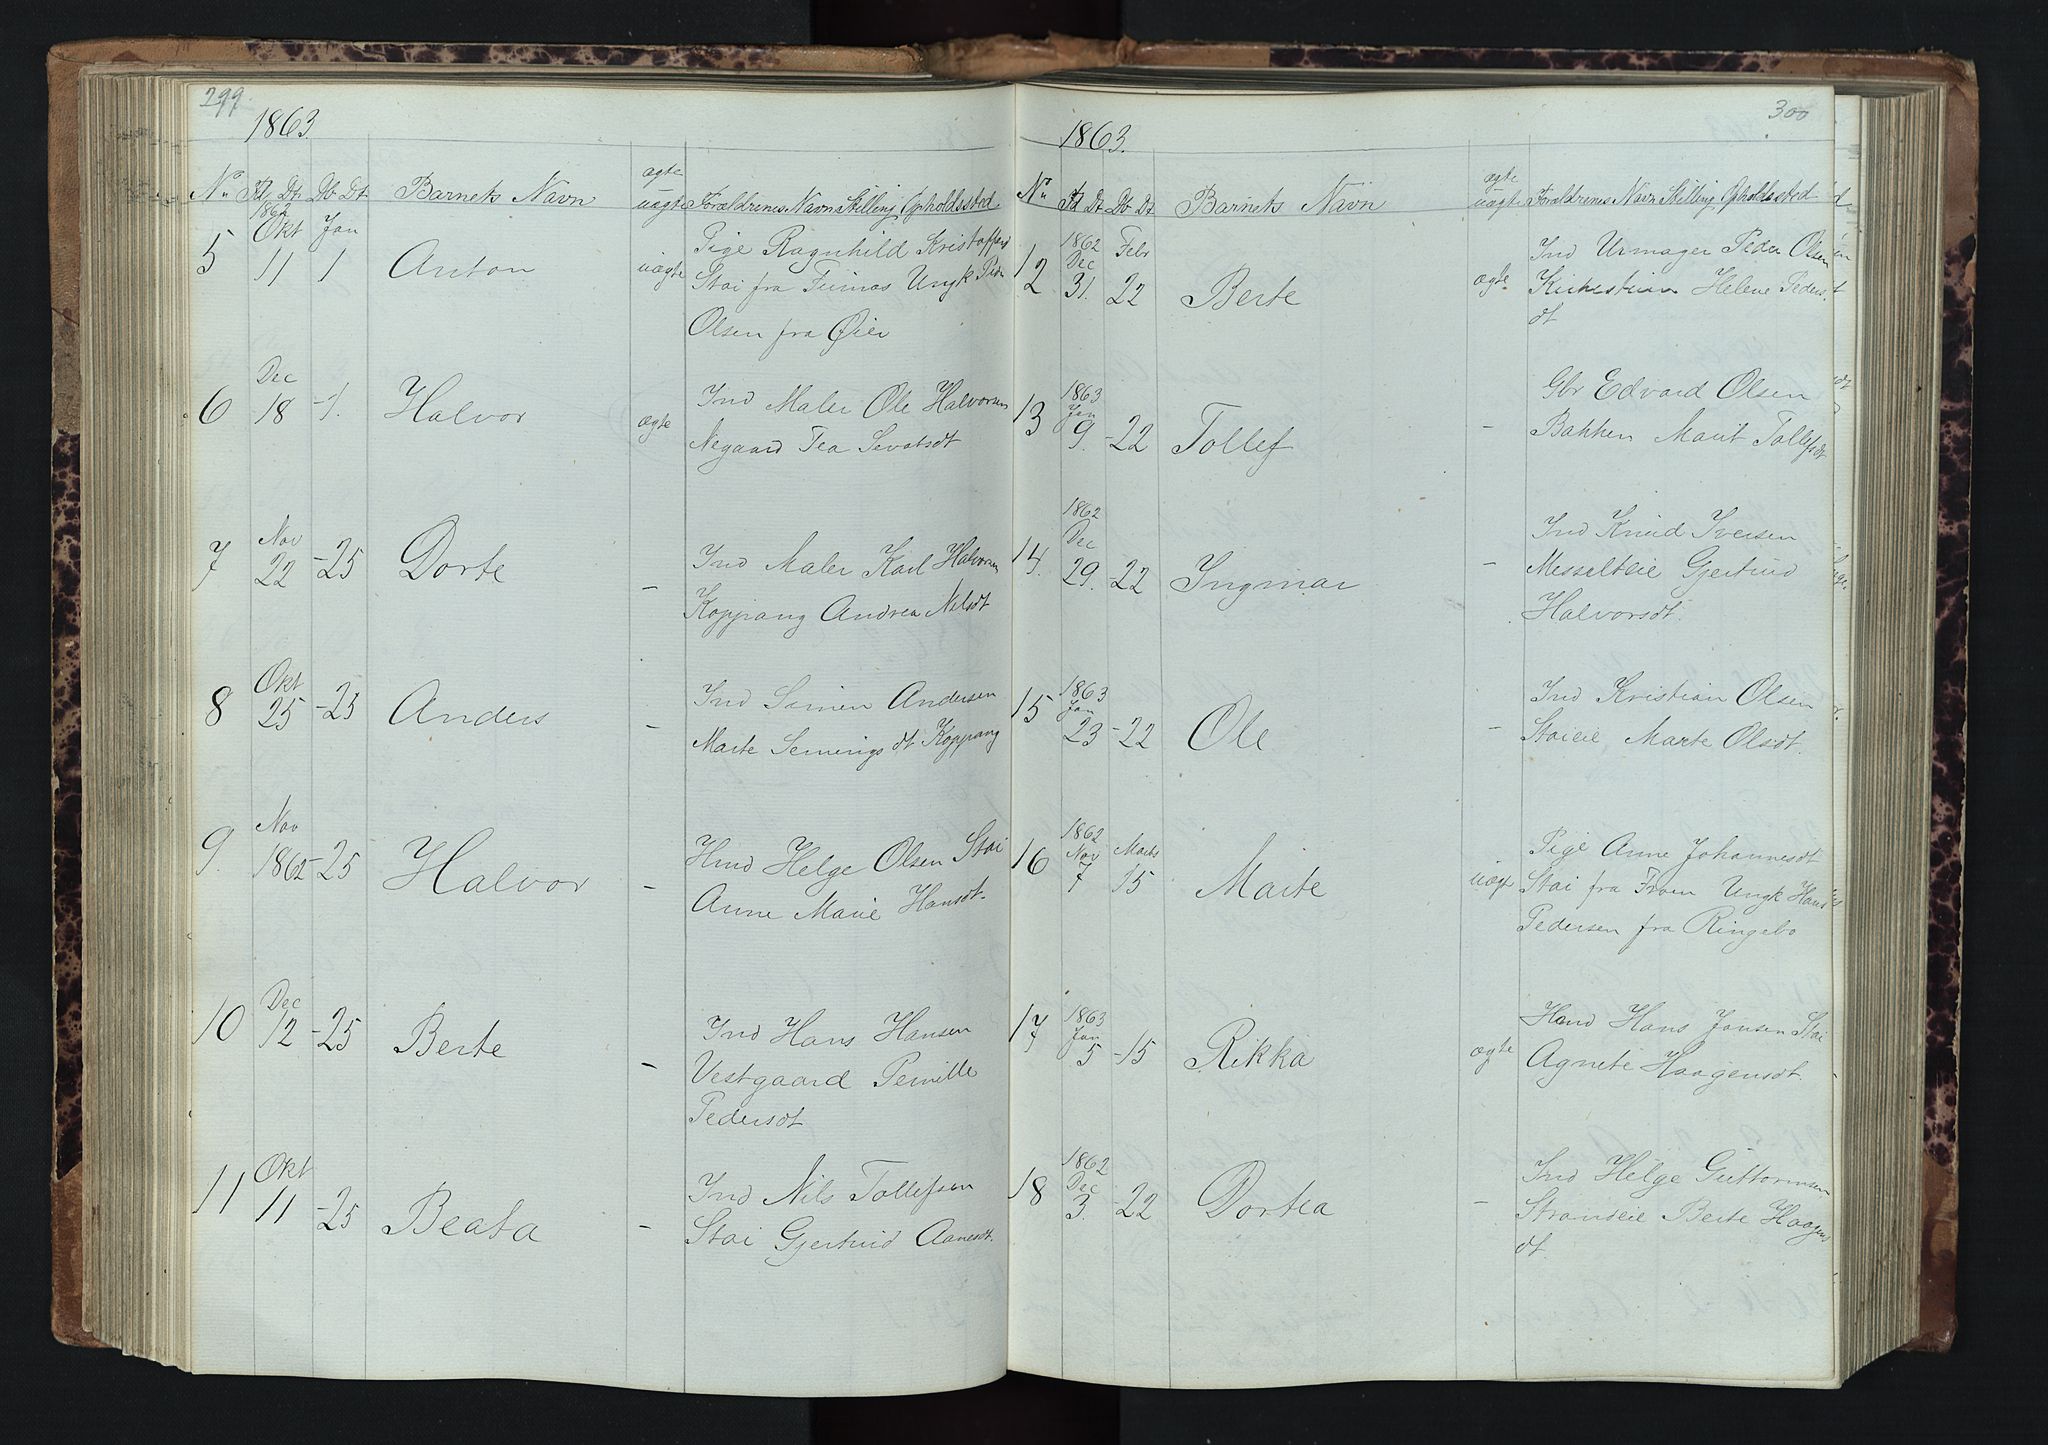 299.
1863.
No Fd Dt. Db Dt. Barnets Navn ægte uægte Forældrenes Navn Stilling, Opholdssted
5 1862 Okt 11 Jan 1 Anton uægte Pige Ragnhild Kristoffersd
Stai fra Ungk Peder
Olsen fra Øier
6 Dec 18 - 1. Halvor ægte Ind Maler Ole Halvorsen
Negaard Tea Sevatsdt
7 Nov 22 - 25 Dorte - Ind Maler Karl Halvorsen
Koppang Andrea Nilsdt
8 Okt 25 - 25 Anders - Ind Simen Andersen
Marte Semingsdt Koppang
9. Nov 1862 - 25 Halvor - Hmd Helge Olsen Stai
Anne Marie Hansdt.
10 Dec 12 - 25 Berte - Ind Hans Hansen
Vestgaard Pernille
Pedersdt
11 Okt 11 - 25 Beata - Ind Nils Tollefsen
Stai Gjertrud Aanesdt.
300
1863.
No Fd Dt. Db Dt. Barnets Navn ægte uægte Forældrenes Navn Stilling, Opholdssted
12 1862 Dec 31. Febr 22 Berte ægte Ind Urmager Peder Olsen
Kirkestuen Helene Peders
dt
13 1863 Jan 9. - 22 Tollef - Gbr Edvard Olsen
Bakken Marit Tollefsdt
14. 1862 Dec 29. 22 Ingmar - Ind Knud Iversen
Messelteie Gjertrud
Halvorsdt.
15 1863 Jan 23 - 22 Ole - Ind Kristian Olsen
Staieie Marte Olsdt.
16 1862 Nov 7 Marts 15 Marte uægt Pige Anne Johannesdt
Stai fra Froen Ungk Hans
Pedersen fra Ringebo
17 1863 Jan 5 - 15 Rikka ægte Hmd Hans Jonsen Stai
Agnete Haagensdt.
18 1862 Dec 3. - 22 Dortea - Ind Helge Guttormsen
Strandeie Berte Haagens
dt.